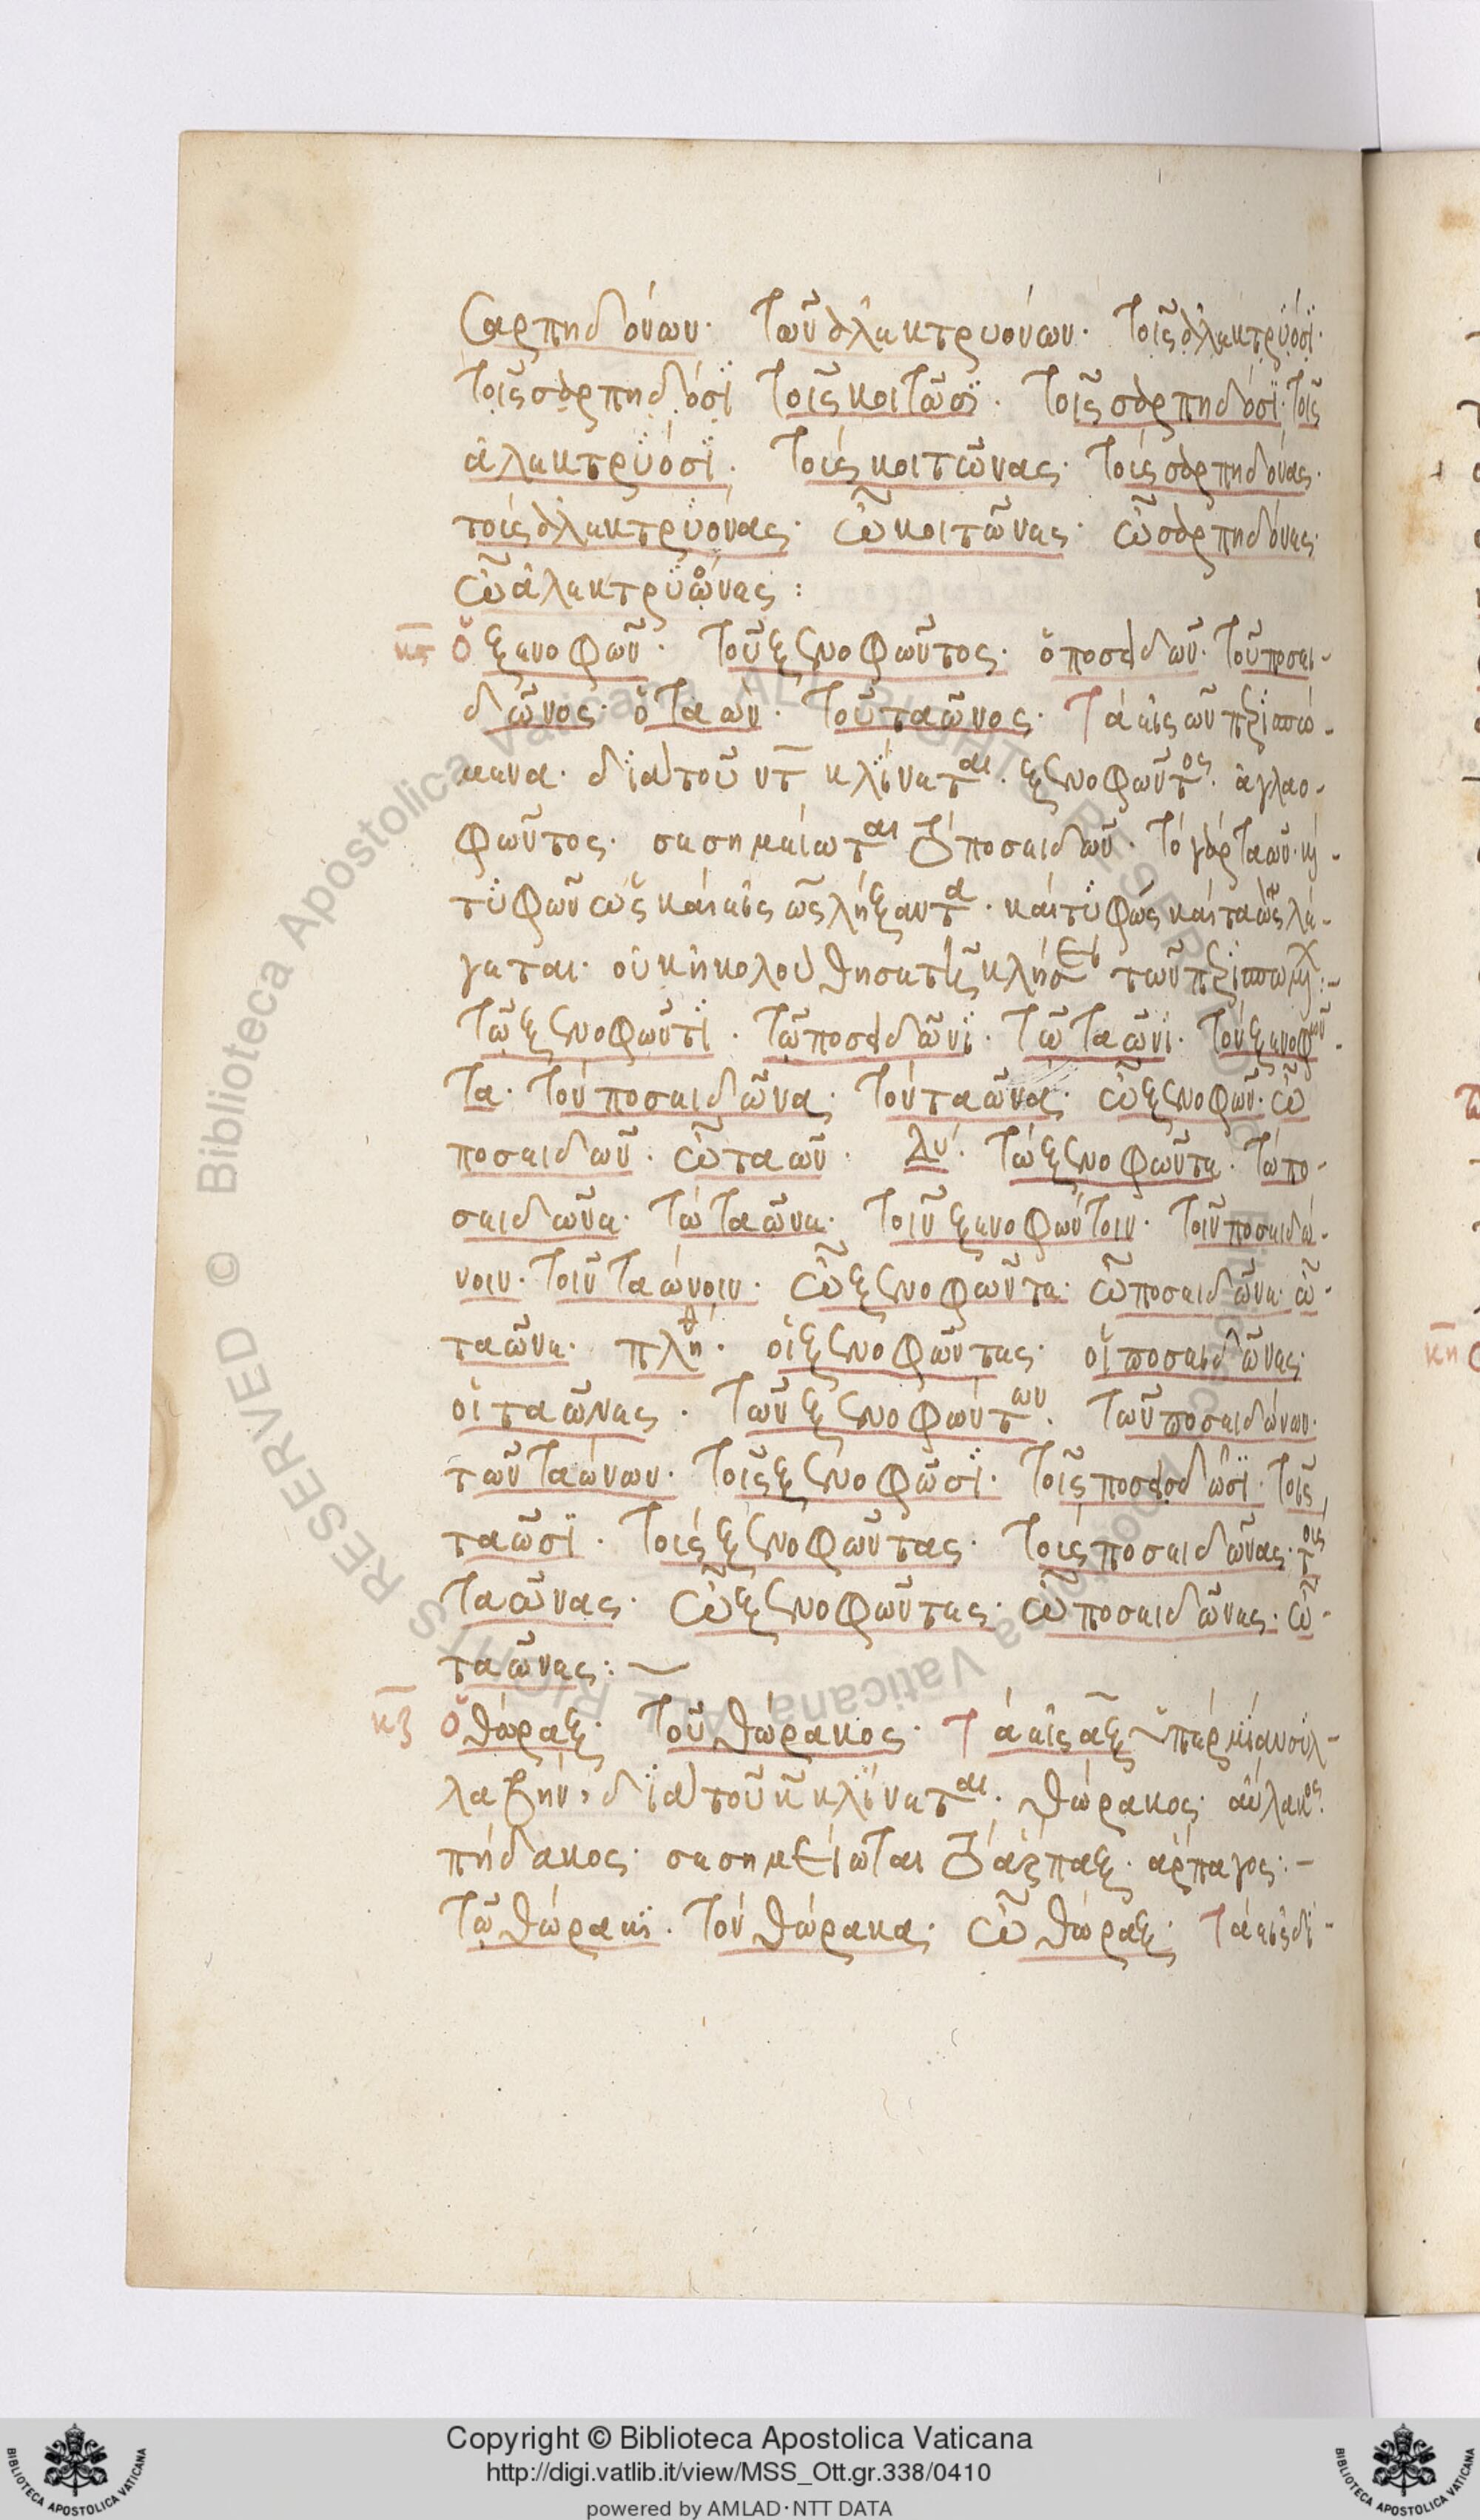 Σαρπηδόνων· τῶν ἀλεκτρυόνων· τοῖς ἀλεκτρυόσϊ·
τοῖς σαρπηδόσϊ τοῖς κοιτῶσϊ· τοῖς σαρπηδόσϊ· τοῖς
ἀλεκτρυόσϊ· τοὺς κοιτῶνας· τοὺς σαρπηδόνας·
τοὺς ἀλεκτρυόνας· ὦ κοιτῶνες· ὦ σαρπηδόνες·
ὦ ἀλεκτρυόνες:
κϛ ὁ ξενοφῶν· τοῦ ξενοφῶντος· ὁ ποσειδῶν· τοῦ ποσει-
δῶνος· ὁ ταών· τοῦ ταῶνος· τὰ εἰς ων περισπώ-
μενα· διὰ τοῦ ντ κλίνεται· ξενοφῶντος· ἀγλαο-
φῶντος· σεσημείωται τὸ ποσειδῶν· τὸ γὰρ ταῶν· καὶ
τυφῶν ὡς καὶ εἰς ως λήξαντα· καὶ τυφὼς καὶ ταὼς λέ-
γεται· οὐκ ἠκολούθησε τῆς κλήσει τῶν περισπωμέ:-
τῷ ξενοφῶντϊ· τῷ ποσειδῶνϊ· τῷ ταῶνϊ· τὸν ξενοφῶν-
τα· τὸν ποσειδῶνα· τὸν ταῶνα· ὦ ξενοφῶν· ὦ
ποσειδῶν· ὦ ταῶν· Δυ· τὼ ξενοφῶντε· τὼ πο-
σειδῶνε· τὼ ταῶνε· τοῖν ξενοφώντοιν· τοῖν ποσειδώ-
νοιν· τοῖν ταώνοιν· ὦ ξενοφῶντε· ὦ ποσειδῶνε· ὦ-
ταῶνε· πλη θ· οἱ ξενοφῶντες· οἱ ποσειδῶνες·
οἱ ταῶνες· τῶν ξενοφώντων· τῶν ποσειδώνων·
τῶν ταώνων· τοῖς ξενοφῶσϊ· τοῖς ποσειδῶσϊ· τοῖς
ταῶσϊ· τοὺς ξενοφῶντας· τοὺς ποσειδῶνας· τοὺς
ταῶνας· ὦ ξενοφῶντες· ὦ ποσειδῶνες· ὦ-
ταῶνες:
κζ ὁ θώραξ· τοῦ θώρακος· τὰ εἰς αξ ὑπὲρ μίαν συλ-
λαβήν, διὰ τοῦ κ κλίνεται· θώρακος· αὔλακος·
πήδακος· σεσημείωται τὸ ἅρπαξ· ἅρπαγος:-
τῷ θώρακϊ· τὸν θώρακα· ὦ θώραξ· τὰ εἰς δϊ-
κη
Copyright © Biblioteca Apostolica Vaticana
http://digi.vatlib.it/view/MSS_Ott.gr.338/0410
powered by AMLAD·NTT DATA
BIBLIOTECA APOSTOLICA VATICANA
BIBLIOTECA APOSTOLICA VATICANA